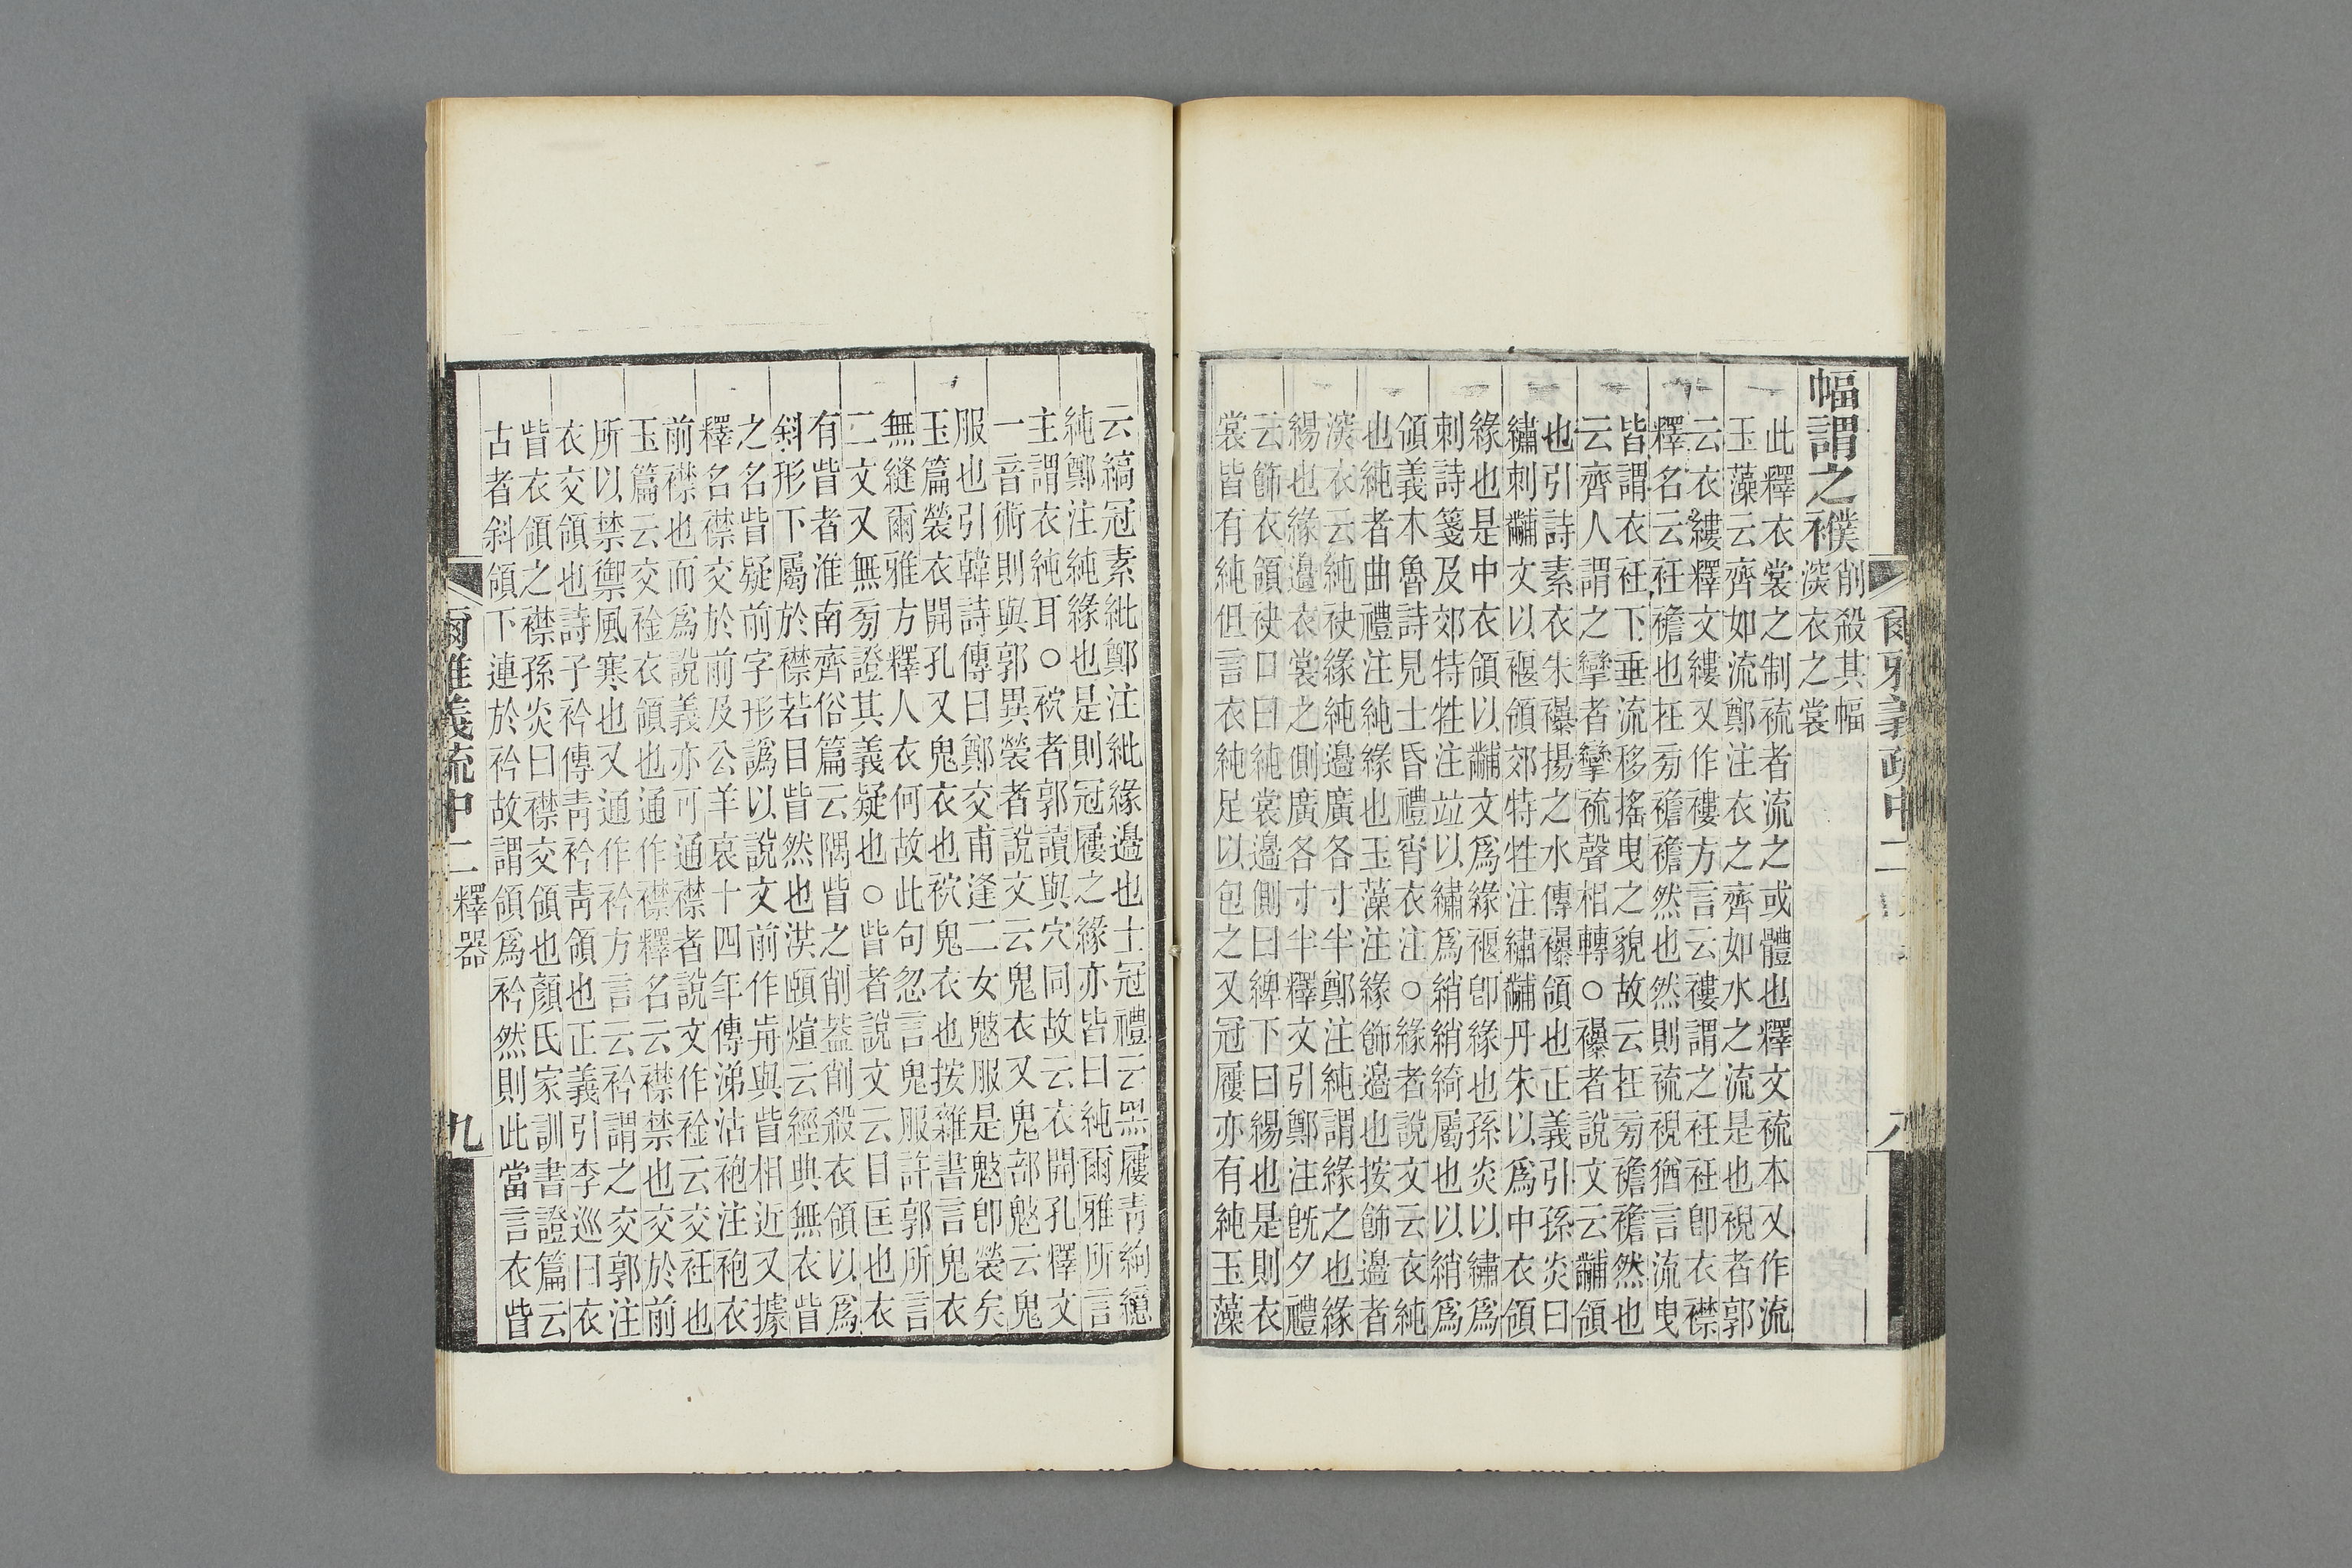 幅謂之襆
削殺其幅
深衣之裳
此釋衣裳之制䘽者流之或體也釋文䘽本又作流
玉藻云齊如流鄭注衣之齊如水之流是也裞者郭
云衣縷釋文縷又作褸方言云褸謂之衽衽卽衣襟
釋名云衽襜也在旁襜襜然也然則䘽裞猶言流曳
皆謂衣衽下垂流移搖曳之貌故云在旁襜襜然也
云齊人謂之攣者攣䘽聲相轉○襮者說文云黼領
也引詩素衣朱襮揚之水傳襮領也正義引孫炎曰
繡刺黼文以褗領郊特牲注繡黼丹朱以爲中衣領
緣也是中衣領以黼文爲緣褗卽緣也孫炎以繡爲
刺詩箋及郊特牲注竝以繡爲綃綃綺屬也以綃爲
領義木魯詩見士昏禮宵衣注○緣者說文云衣純
也純者曲禮注純緣也玉藻注緣飾邊也按飾邊者
深衣云純袂緣純邊廣各寸半鄭注純謂緣之也緣
緆也緣邊衣裳之側廣各寸半釋文引鄭注旣夕禮
云飾衣領袂口曰純裳邊側曰綼下曰緆也是則衣
裳皆有純但言衣純足以包之又冠屨亦有純玉藻
爾雅義疏中二
八
云縞冠素紕鄭注紕緣邊也士冠禮云黑屨靑絇繶
純鄭注純緣也是則冠屨之緣亦皆曰純爾雅所言
主謂衣純耳○袕者郭讀與穴同故云衣開孔釋文
一音術則與郭異褮者說文云鬼衣又鬼部鬾云鬼
服也引韓詩傳曰鄭交甫逢二女鬾服是鬾卽褮矣
玉篇褮衣開孔又鬼衣也袕鬼衣也按雜書言鬼衣
無縫爾雅方釋人衣何故此句忽言鬼服許郭所言
二文又無旁證其義疑也○眥者說文云目匡也衣
有眥者淮南齊俗篇云隅眥之削蓋削殺衣領以爲
斜形下屬於襟若目眥然也洪頤煊云經典無衣眥
之名眥疑前字形譌以說文前作歬與眥相近又據
釋名襟交於前及公羊哀十四年傳涕沾袍注袍衣
前襟也而爲說義亦可通襟者說文作䘳云交衽也
玉篇云交䘳衣領也通作襟釋名云襟禁也交於前
所以禁禦風寒也又通作衿方言云衿謂之交郭注
衣交領也詩子衿傳靑衿靑領也正義引李巡曰衣
眥衣領之襟孫炎曰襟交領也顏氏家訓書證篇云
古者斜領下連於衿故謂領爲衿然則此當言衣眥
爾雅義疏中二
釋器
九